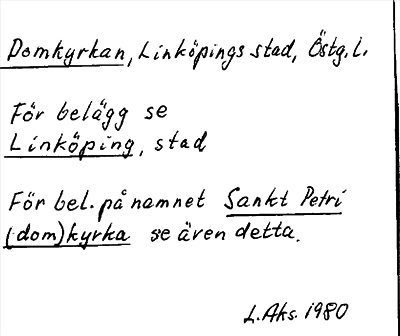 Domkyrkan, Linköpings stad, Östg. l.
För belägg se
Linköping, stad
För bel. på namnet Sankt Petri
(dom)kyrka se även detta.
L.Aks. 1980